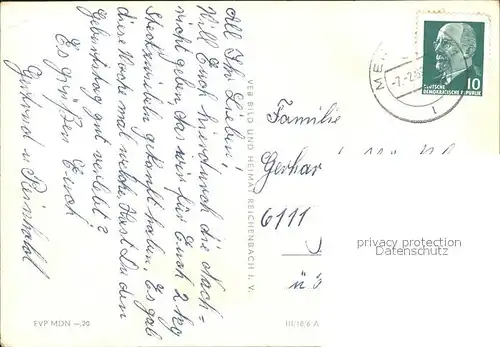 All Ihr Lieben!
Will Euch hierdurch die Nach-
richt geben, das wir für Euch 2 kg
Steckzwiebeln gekauft haben. Es gab
diese Woche mal welche. Hast Du den
Geburtstag gut verlebt?
Es grüßen Euch
Gertraud u Reinhold
VEB BILD UND HEIMAT REICHENBACH I. V.
EVP MDN —,20
III/18/6 A
ME
-7.-2.
10
DEUTSCHE
DEMOKRATISCHE REPUBLIK
Familie
Gerhar
6111
ü
privacy protection
Datenschutz